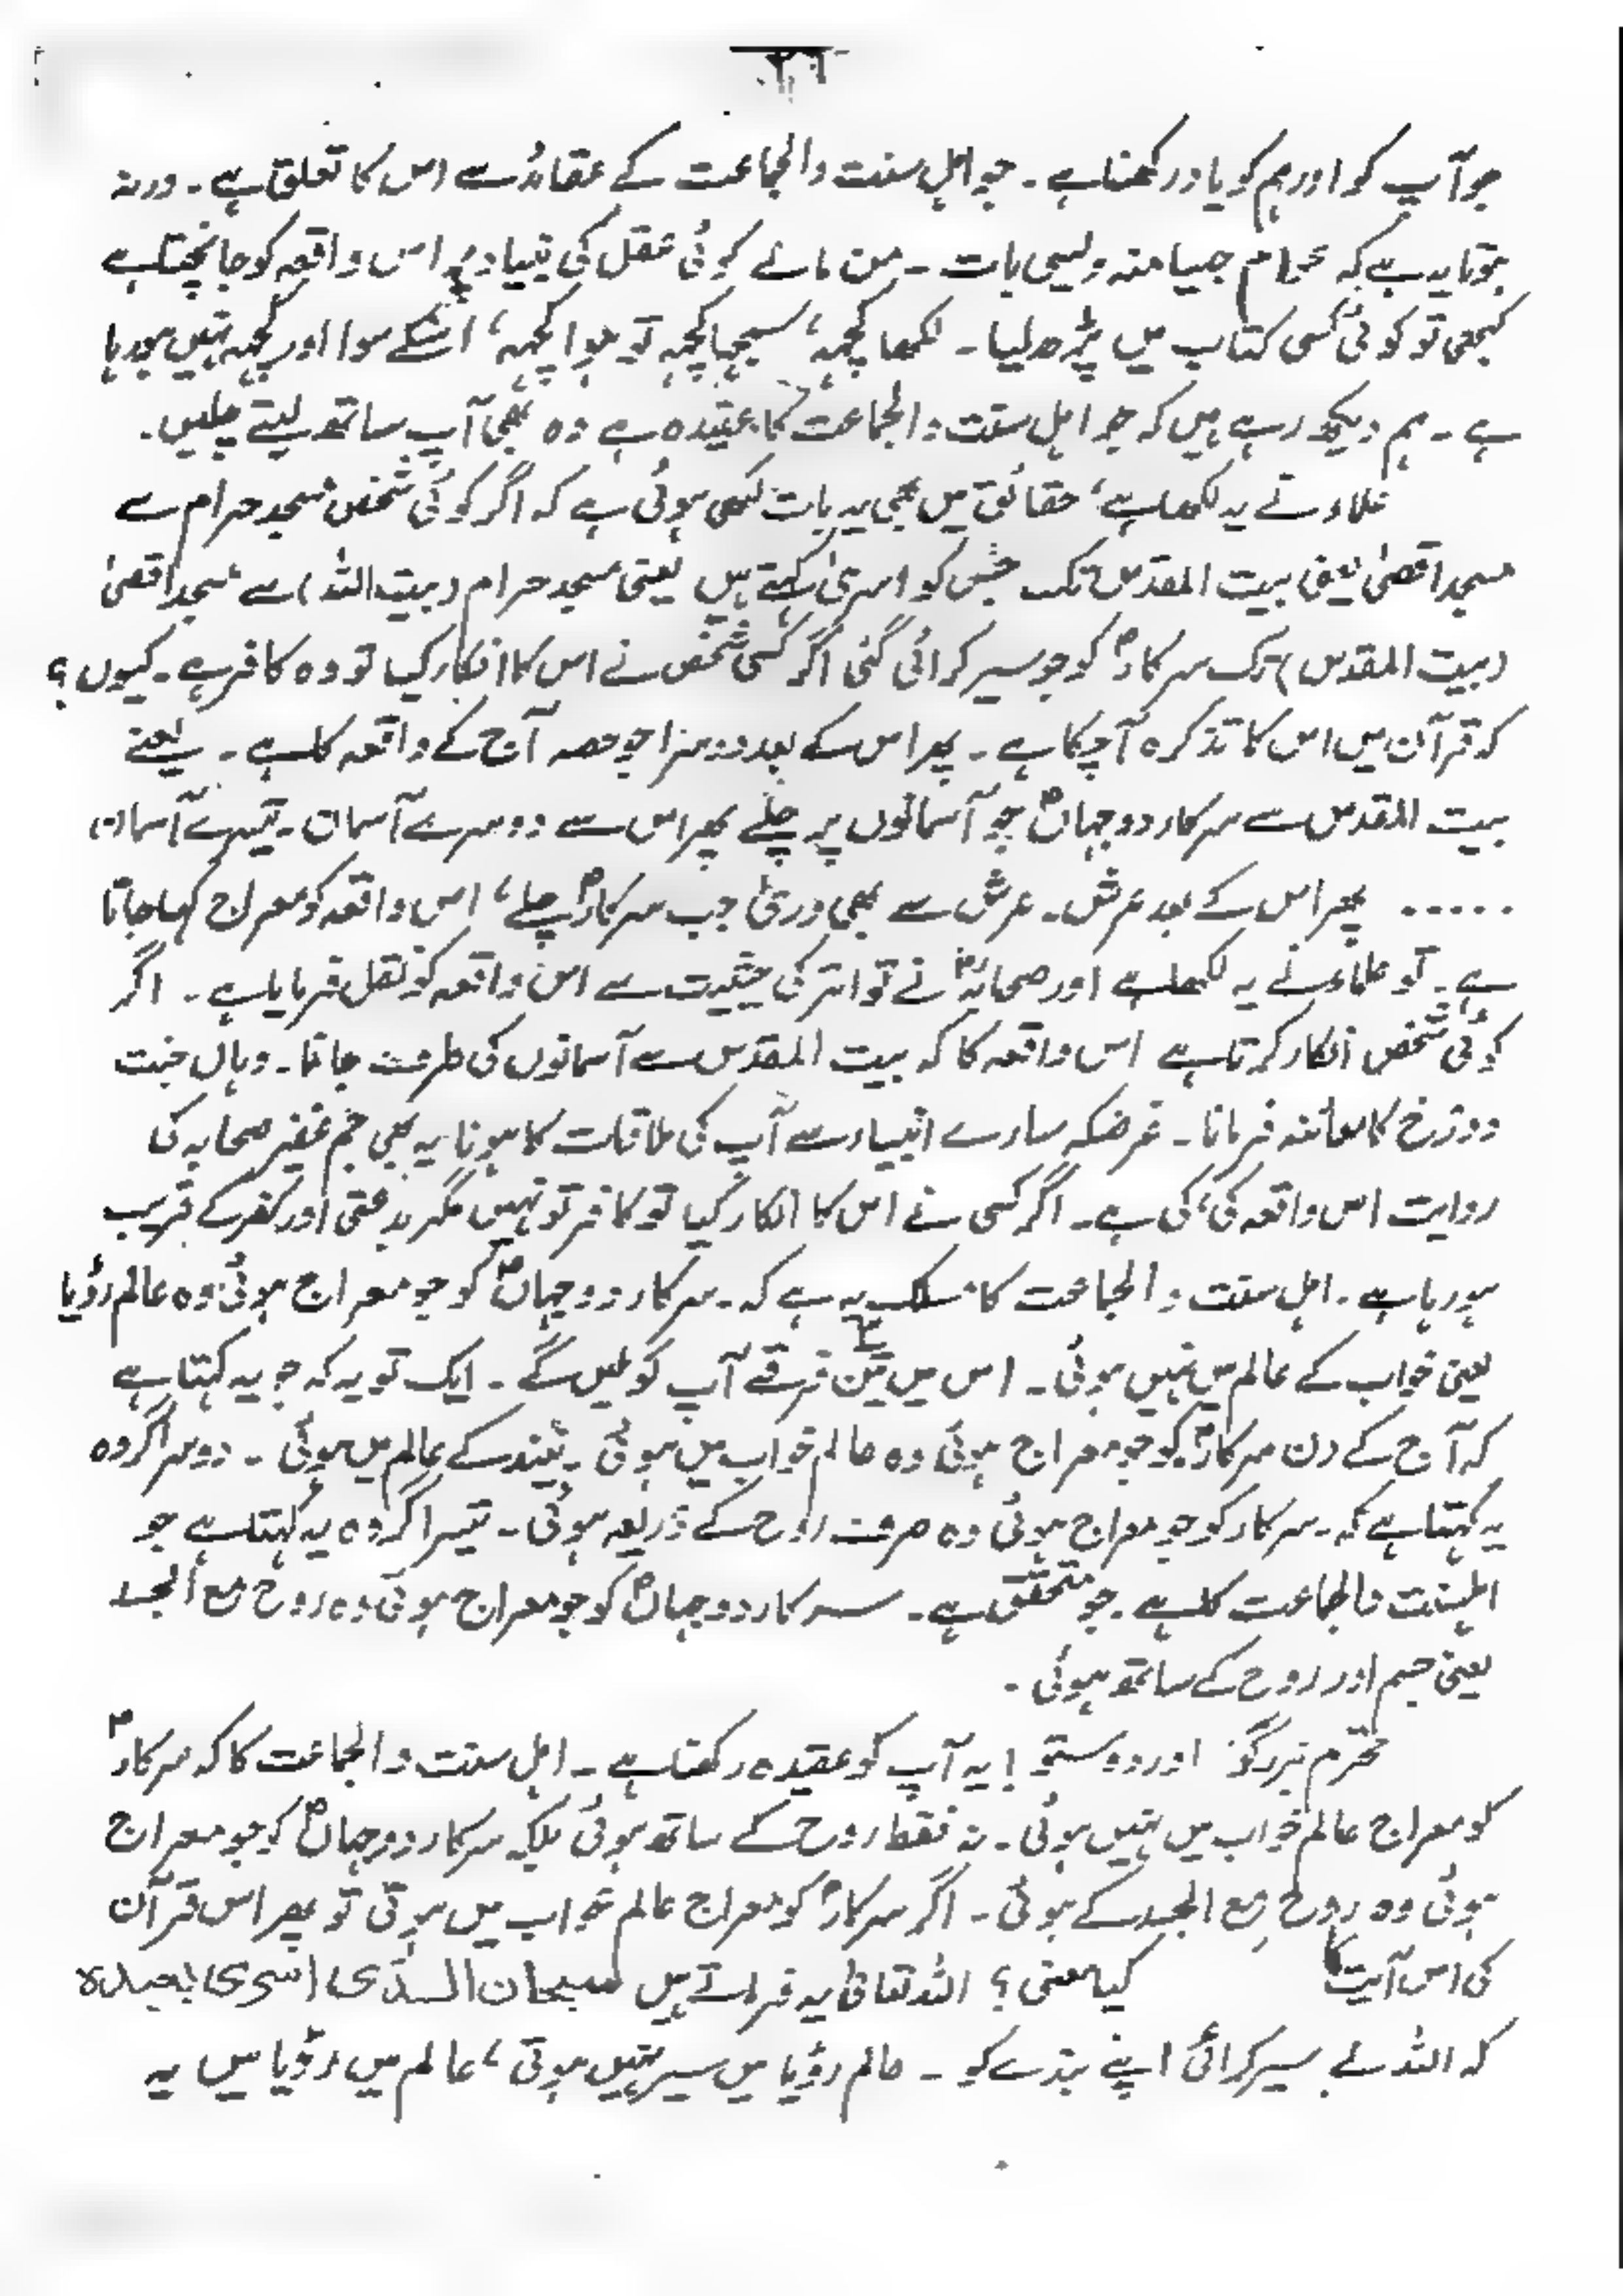 جو آپ کو اور ہم کو یاد رکھنا ہے ۔ جو اہل سنت والجماعت کے عقائد سے اس کا تعلق ہے ۔ ورنہ
ہوتا یہ ہے کہ عوام جیسا منہ ویسی بات ۔ من مانے کوئی عقل کی بنیاد پر اس واقعہ کو جانچتا ہے
کبھی تو کوئی کسی کتاب میں پڑھ لیا ۔ لکھا کچھ ، سمجھا کچھ تو ہوا کچھ ، اسکے سوا اور کچھ نہیں ہو رہا
ہے ۔ ہم دیکھ رہے ہیں کہ جو اہل سنت والجماعت کا عقیدہ ہے وہ بھی آپ ساتھ لیتے چلیں ۔
علماء نے یہ لکھا ہے ، حقائق میں بھی یہ بات لکھی ہوئی ہے کہ اگر کوئی شخص مسجد حرام سے
مسجد اقصیٰ یعنی بیت المقدس تک جس کو اسریٰ کہتے ہیں یعنی مسجد حرام (بیت اللہ) سے مسجد اقصیٰ
(بیت المقدس) تک سرکارؐ کو جو سیر کرائی گئی اگر کسی شخص نے اس کا انکار کیا تو وہ کافر ہے ۔ کیوں ؟
کہ قرآن میں اس کا تذکرہ آچکا ہے ۔ پھر اس کے بعد دوسرا جو حصہ آج کے واقعہ کا ہے ۔ یعنے
بیت المقدس سے سرکار دو جہاںؐ جو آسمانوں پر چلے پھر اس سے دوسرے آسمان ۔ تیسرے آسمان
..... پھر اس کے بعد عرش ۔ عرش سے بھی وریٰ جب سرکارؐ چلے ، اس واقعہ کو معراج کہا جاتا
ہے ۔ تو علماء نے یہ لکھا ہے اور صحابہؓ نے تواتر کی حیثیت سے اس واقعہ کو نقل فرمایا ہے ۔ اگر
کوئی شخص انکار کرتا ہے اس واقعہ کا کہ بیت المقدس سے آسمانوں کی طرف جانا ۔ وہاں جنت
دوزخ کا معائنہ فرمانا ۔ غرضکہ سارے انبیاء سے آپ کی ملاقات کا ہونا یہ بھی جم غفیر صحابہ کی
روایت اس واقعہ کی ، کی ہے ۔ اگر کسی نے اس کا انکار کیا تو کافر تو نہیں مگر بدعتی اور کفر کے قریب
ہو رہا ہے ۔ اہل سنت والجماعت کا مسلک یہ ہے کہ ۔ سرکار دو جہاںؐ کو جو معراج ہوئی وہ عالم رؤیا
یعنی خواب کے عالم میں نہیں ہوئی ۔ اس میں تین ۳ فرقے آپ کو ملیں گے ۔ ایک تو یہ کہ جو یہ کہتا ہے
کہ آج کے دن سرکارؐ کو جو معراج ہوئی وہ عالم خواب میں ہوئی ۔ نیند کے عالم میں ہوئی ۔ دوسرا گروہ
یہ کہتا ہے کہ ۔ سرکار کو جو معراج ہوئی وہ صرف روح کے ذریعہ ہوئی ۔ تیسرا گروہ یہ کہتا ہے جو
اہلسنت والجماعت کا ہے ۔ جو متحقق ہے ۔ سرکار دو جہاںؐ کو جو معراج ہوئی وہ روح مع الجسد
یعنی جسم اور روح کے ساتھ ہوئی ۔
محترم بزرگو اور دوستو ! یہ آپ کو عقیدہ رکھنا ہے ۔ اہل سنت والجماعت کا کہ سرکارؐ
کو معراج عالم خواب میں نہیں ہوئی ۔ نہ فقط روح کے ساتھ ہوئی بلکہ سرکار دو جہاںؐ کو جو معراج
ہوئی وہ روح مع الجسد کے ہوئی ۔ اگر سرکارؐ کو معراج عالم خواب میں ہوتی تو پھر اس قرآن
کی اس آیت کا کیا معنی ؟ اللہ تعالیٰ یہ فرماتے ہیں سبحان الذی اسریٰ بعبدہ
کہ اللہ نے سیر کرائی اپنے بندے کو ۔ عالم رؤیا میں سیر نہیں ہوتی ، عالم میں رؤیا میں یہ